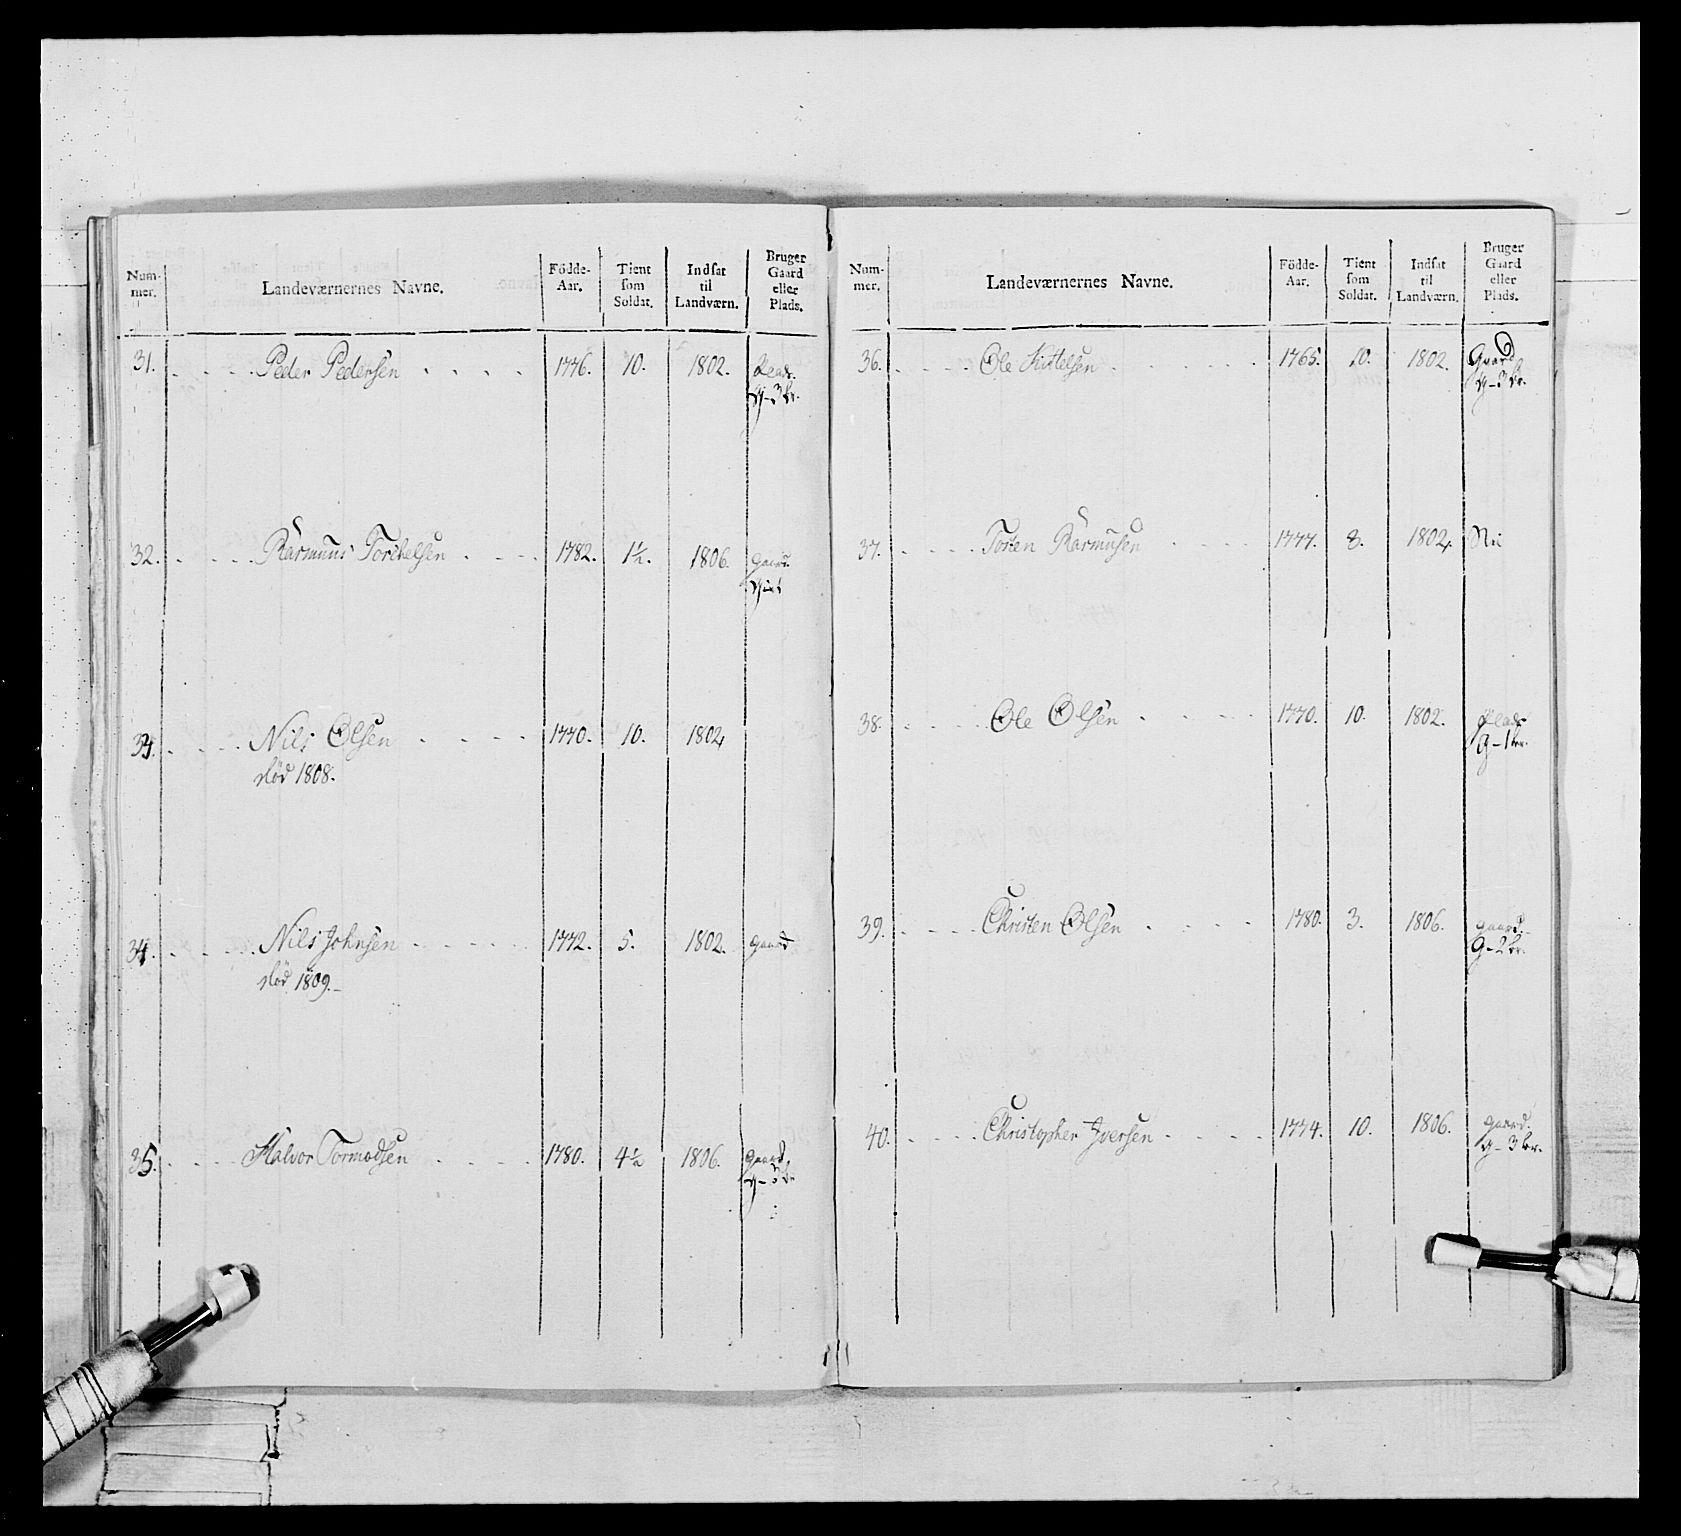 Num-
mer.
Landeværnernes Navne.
Födde-
Aar.
Tient
som
Soldat.
Indsat
til
Landværn.
Bruger
Gaard
eller
Plads.
31. Peder Pedersen 1776. 10. 1802. Plads.
g-3 br.
32. Rasmuus Torchelsen 1782. 1½. 1806. gaard.
33. Nils Olsen 1770. 10. 1802
död 1808.
34. Nils Johnsen 1772. 5. 1802. gaard
död 1809.
35. Halvor Tormodsen 1780. 4½ 1806. gaard
g-3 b.
Num-
mer.
Landeværnernes Navne.
Födde-
Aar.
Tient
som
Soldat.
Indsat
til
Landværn.
Bruger
Gaard
eller
Plads.
36. Ole Kittelsen 1765. 10. 1802. Gaard
g-3 br.
37. Tosten Rasmusen 1777. 8. 1802. Nei
38. Ole Olsen 1770. 10. 1802. Plads
g-1 br.
39. Christen Olsen 1780. 3. 1806. gaard.
g-2 br.
40. Christopher Iversen 1774. 10. 1806. gaard.
g-3 br.